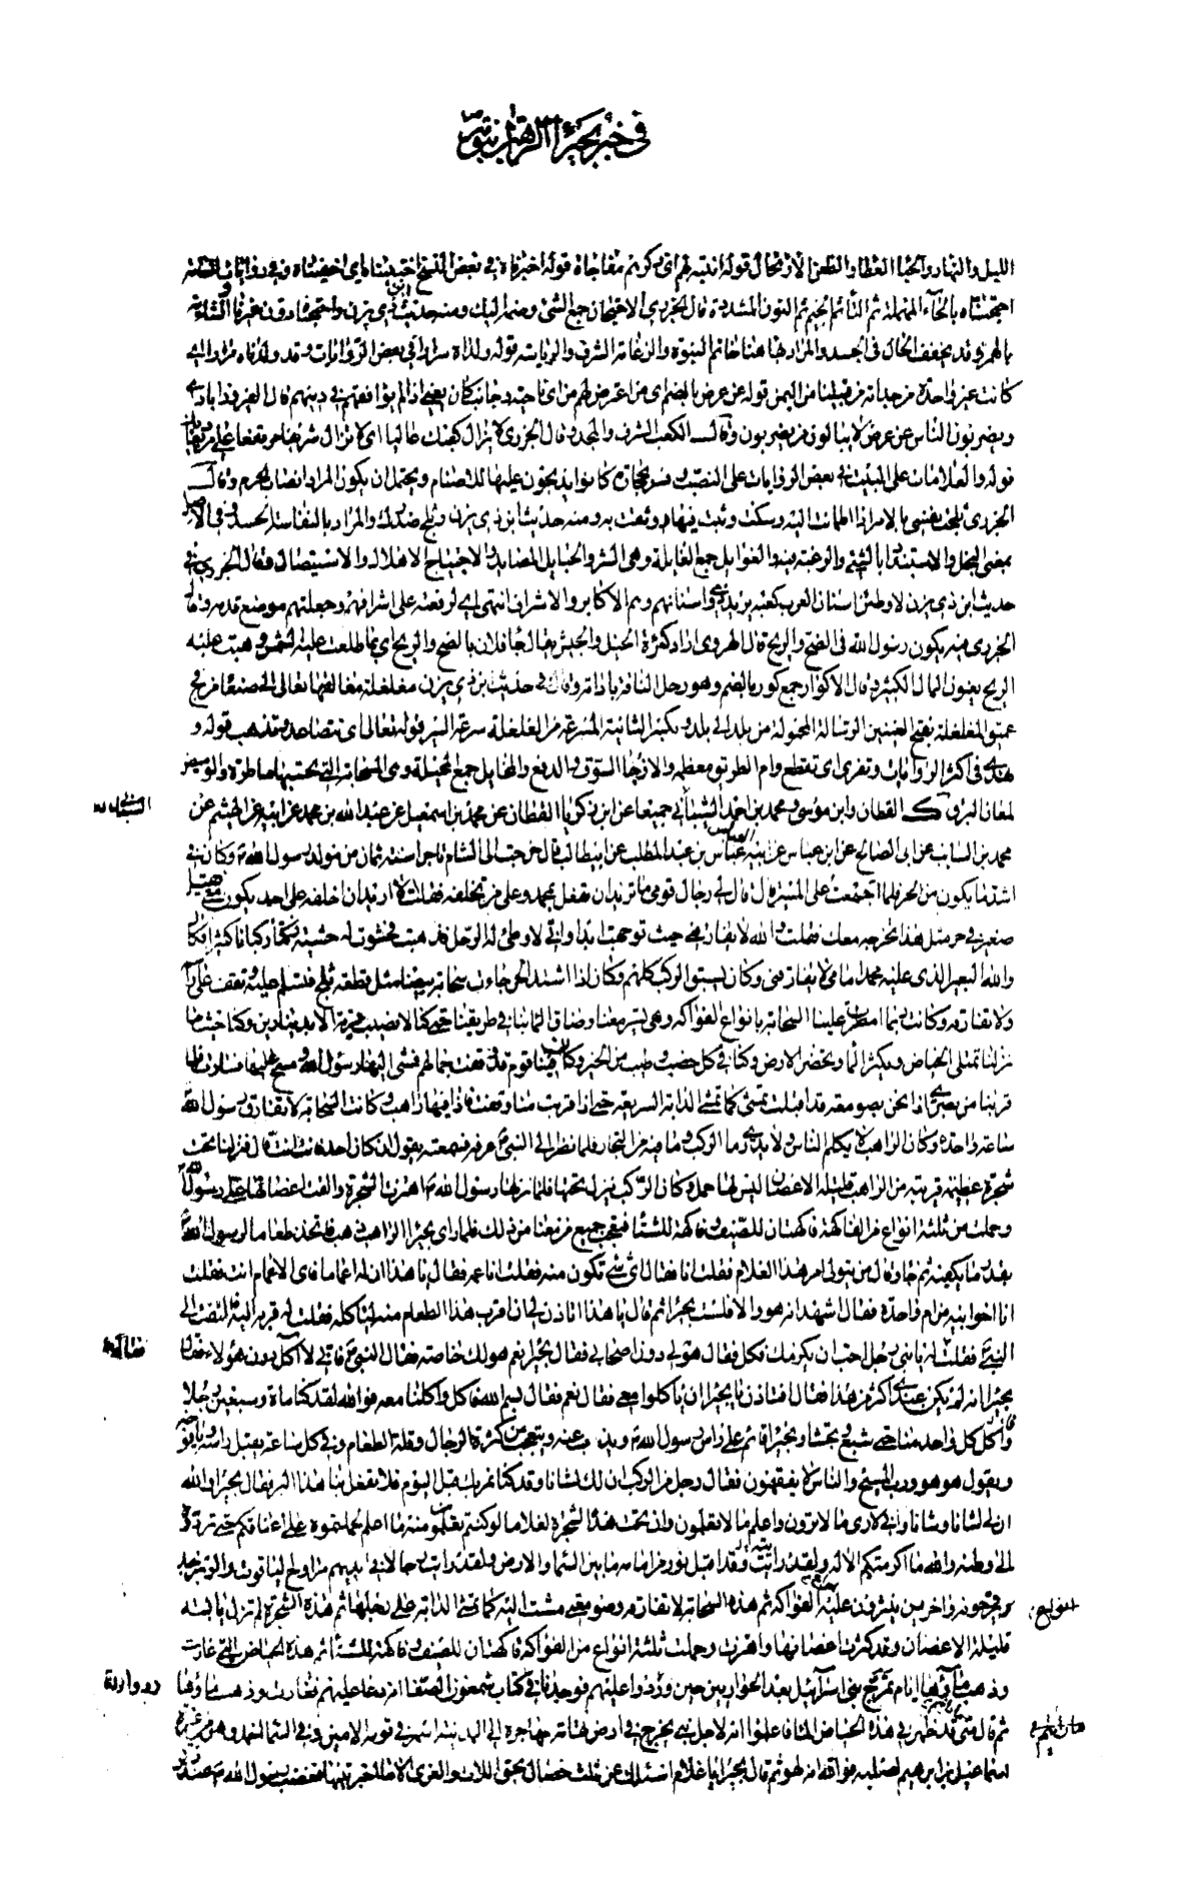 في خبر بحيرا الراهب بنبوته
الليل والنهار والحبا العطا والظعن الارتحال قوله انتبه لهم اى بكرتهم مفاجاة قوله اخترناه في بعض النسخ اختبيناه اى اخفيناه وفي روايات العامة
احتجناه بالحاء المهملة ثم التاء ثم الجيم ثم النون المشددة قال الجزري الاحتجان جمع الشيء وضمه اليك ومنه حديث ابن ذي يزن واحتجناه دون غيرنا الشامة
بالهمز وقد يخفف الخال في الجسد والمراد بها هنا خاتم النبوة والزعامة الشرف والرياسة قوله ولدناه سرارا في بعض الروايات قد ولدناه مرارا اى
كانت غير واحدة من جداته من قبيلنا من اليمن قوله عن عرض بالضم اى من اعترض لهم من اى ناحية وجانب كان يعني اذا لم يوافقهم في دينهم قال الفيروزابادي
ويضربون الناس عن عرض لا يبالون من يضربون وقال الكعب الشرف والمجد وقال الجزري لا يزال كعبك عاليا اى لا تزال شريفا مرتفعا على من يعاديك
قوله والعلامات على البيت في بعض الروايات على النصب وهو حجارة كانوا يذبحون عليها للاصنام ويحتمل ان يكون المراد انصاب الحرم وقال
الجزري ثلجت نفسي بالامر اذا اطمأنت اليه وسكنت وثبت فيها ووثقت به ومنه حديث ابن ذي يزن وثلج صدرك والمراد بالنفاسة الحسد وفي الاصل
بمعنى البخل والاستبداد بالشيء والرغبة فيه والغوايل جمع الغايلة وهي الشر والحبايل المصايد والاجتياح الاهلاك والاستيصال وقال الجزري في
حديث ابن ذي يزن لاوطئن اسنان العرب كعبه يريد ذوي اسنانهم وهم الاكابر والاشراف انتهى اى لرفعته على اشرافهم وجعلتهم موضع قدمه وقال
الجزري فيه يكون رسول الله في الضح والريح قال الهروي اراد كثرة الخيل والجيش يقال جاء فلان بالضح والريح اى بما طلعت عليه الشمس وهبت عليه
الريح يعنون المال الكثير وقال الاكوار جمع كور بالضم وهو رحل الناقة باداته وقال في حديث ابن ذي يزن مغلغلة مغالقها تعالى الى صنعاء من فج
عميق المغلغلة بفتح الغينين الرسالة المحمولة من بلد الى بلد وبكسر الثانية المسرعة من الغلغلة سرعة السير قوله تعالى اى تتصاعد وتذهب قوله و
هدى في اكثر الروايات وتفرى اى تقطع وام الطريق معظمه والازجاء السوق والدفع والمخايل جمع المخيلة وهي السحابة التي تحسبها ماطرة والوميض
لمعان البرق ك القطان وابن موسى ومحمد بن احمد الشيباني جميعا عن ابن زكريا القطان عن محمد بن اسمعيل عن عبد الله بن محمد عن ابيه عن الهيثم عن
السناني
محمد بن السايب عن ابي الصالح عن ابن عباس عن ابيه العباس بن عبد المطلب عن ابي طالب قال خرجت الى الشام تاجرا سنة ثمان من مولد رسول الله ص وكان في
اشد ما يكون من الحر فلما اجتمعت على المسير قال لي رجال قومي ما تريد ان تفعل بمحمد وعلى من تخلفه فقلت لا اريد ان اخلفه على احد يكون معي فقيل
صغير في حر مثل هذا تخرجه معك فقلت والله لا يفارقني حيث توجهت ابدا واني لاوطئ له الرحل فذهبت فحشوت له حشية وكنا ركبانا كثيرا فكان
والله البعير الذي عليه محمد امامي لا يفارقني وكان يسبق الركب كلهم وكان اذا اشتد الحر جاءت سحابة بيضاء مثل قطعة ثلج فتسلم عليه وتقف على رأسه
ولا تفارقه وكانت ربما امطرت علينا السحابة بانواع الفواكه وهي تسير معنا وضاق الماء بنا في طريقنا حتى كنا لا نصيب قربة الا بدينارين وكنا حيث ما
نزلنا تمتلى الحياض ويكثر الماء وتخضر الارض وكنا في كل خصب وطيب من الخير وكان فينا قوم قد وقفت جمالهم فمشى اليها رسول الله ومسح عليها فسارت فلما
قربنا من بصرى اذا نحن بصومعة قد اقبلت تمشي كما تمشي الدابة السريعة حتى اذا قربت منا وقفت فاذا فيها راهب وكانت السحابة لا تفارق رسول الله ص
ساعة واحدة وكان الراهب لا يكلم الناس ولا يدري ما الركب وما فيه من التجار فلما نظر الى النبي ص عرفه فسمعته يقول ان كان احد فانت انت قال فنزلنا تحت
شجرة عظيمة قريبة من الراهب قليلة الاغصان ليس لها حمل وكان الركب ينزل تحتها فلما نزلها رسول الله ص اهتزت الشجرة والقت اغصانها على رسول الله ص
وحملت من ثلثة انواع من الفاكهة فاكهتان للصيف وفاكهة للشتا فتعجب جميع من معنا من ذلك فلما راى بحيرا الراهب ذهب فاتخذ طعاما لرسول الله ص
بقدر ما يكفيه ثم جاء وقال من يتولى امر هذا الغلام فقلت انا فقال اى شيء تكون منه فقلت انا عمه فقال يا هذا ان له اعماما فاى الاعمام انت فقلت
انا اخو ابيه من ام واحدة فقال اشهد انه هو والا فلست بحيرا ثم قال يا هذا اتاذن لي ان اقرب هذا الطعام منه لياكله فقلت له قربه اليه والتفت الى
النبي ص فقلت له يا بني رجل احب ان يكرمك فكل فقال هو لي دون اصحابي فقال بحيرا نعم هو لك خاصة فقال النبي ص فاني لا آكل دون هؤلاء فقال
فقال له
بحيرا انه لم يكن عندي اكثر من هذا فقال افتاذن يا بحيرا ان ياكلوا معي فقال نعم فقال بسم الله فاكل واكلنا معه فوالله لقد كنا مائة وسبعين رجلا
واكل كل واحد منا حتى شبع وتجشا وبحيرا قائم على راس رسول الله ص يذب عنه ويتعجب من كثرة الرجال وقلة الطعام وفي كل ساعة يقبل راسه ويافوخه
ويقول هو هو ورب المسيح والناس لا يفقهون فقال رجل من الركب ان لك لشانا وقد كنا نمر بك قبل اليوم فلا تفعل بنا هذا البر فقال بحيرا والله
ان لي لشانا وشانا واني لارى ما لا ترون واعلم ما لا تعلمون وان تحت هذه الشجرة لغلاما لو كنتم تعلمون منه ما اعلم لحملتموه على اعناقكم حتى تردوه
الى وطنه والله ما اكرمتكم الا له ولقد رايت له وقد اقبل نور من امامه ما بين السماء والارض ولقد رايت رجالا في ايديهم مراوح الياقوت والزبرجد
يروحونه واخرين ينثرون عليه انواع الفواكه ثم هذه السحابة لا تفارقه وصومعتي مشت اليه كما تمشي الدابة على رجلها ثم هذه الشجرة لم تزل يابسة
قليلة الاغصان وقد كثرت اغصانها واهتزت وحملت ثلثة انواع من الفواكه فاكهتان للصيف وفاكهة للشتاء ثم هذه الحياض التي غارت
وذهب ماؤها ايام تمرج بني اسرآئيل بعد الحواريين حين وردوا عليهم فوجدنا في كتاب شمعون الصفا انه دعا عليهم فغارت وذهب ماؤها
ثم قال متى ما رايتم قد ظهر في هذه الحياض الماء فاعلموا انه لاجل نبي يخرج في ارض تهامة مهاجره الى المدينة اسمه في قومه الامين وفي السماء احمد وهو من عترة
اسماعيل بن ابرهيم لصلبه فوالله انه لهو ثم قال بحيرا يا غلام اسئلك عن ثلث خصال بحق اللات والعزى الا ما اخبرتنيها فغضب رسول الله ص عند